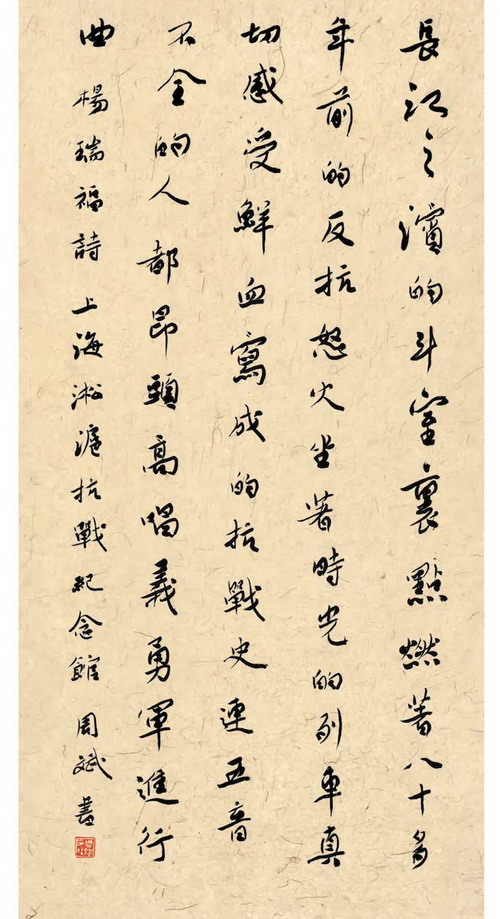 長江之濱的斗室裏點燃著八十多
年前的反抗怒火坐著時光的列車真
切感受鮮血寫成的抗戰史連五音
不全的人都昂頭高唱義勇軍進行
曲楊瑞福詩上海淞滬抗戰紀念館周斌書